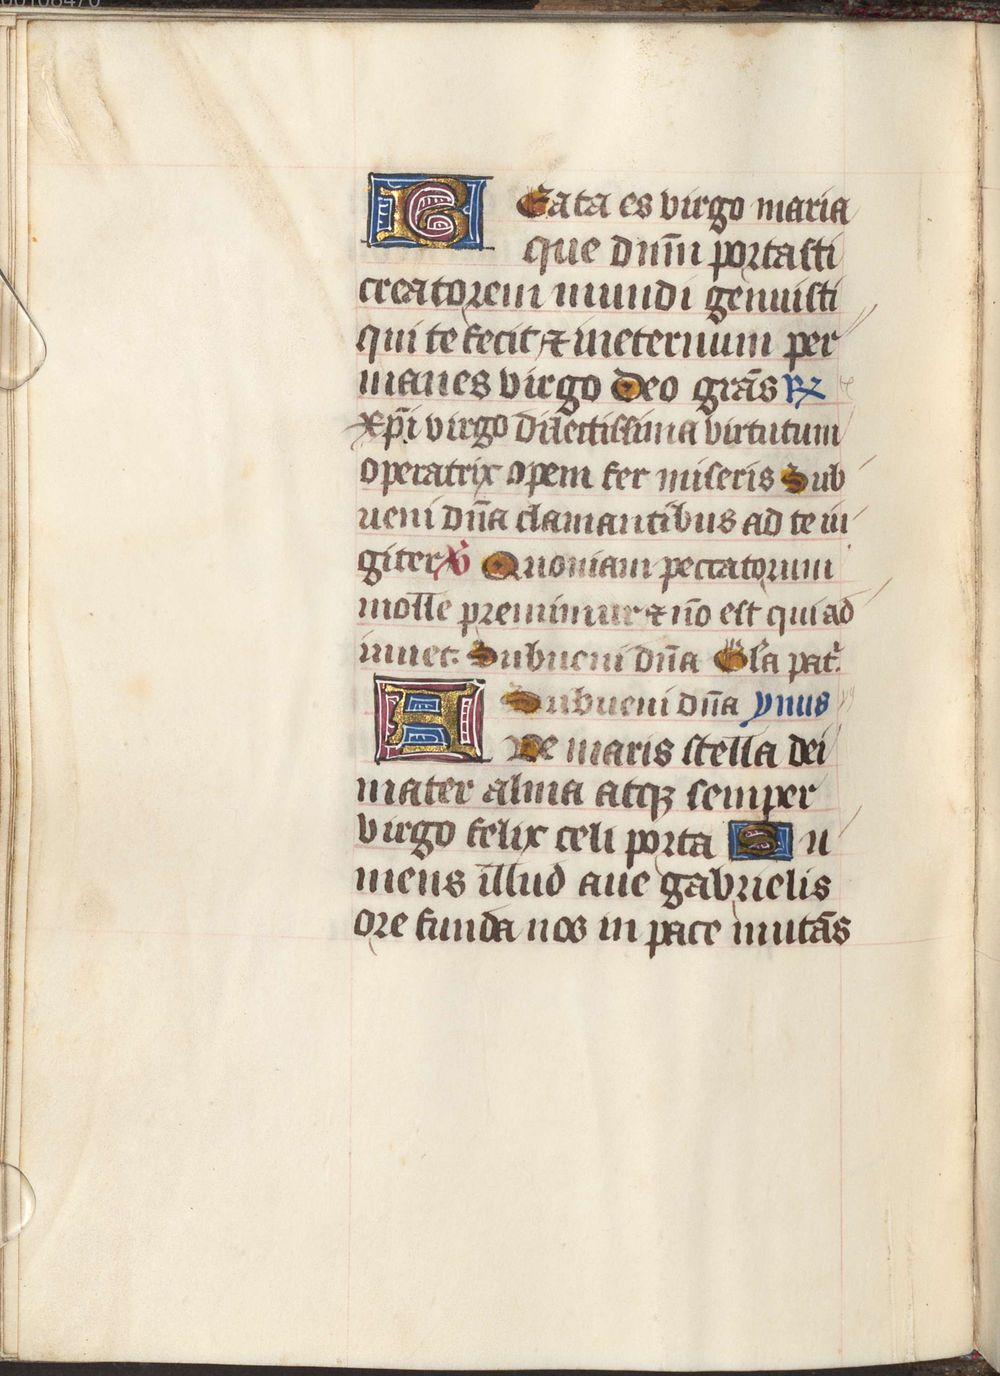 BEata es virgo maria
que dn̄m portasti
creatorem mundi genuisti
qui te fecit ⁊ ineternum per
manes virgo Deo grās ℟
xp̄i virgo dilectissima virtutum
operatrix opem fer miseris Sub
ueni dn̄a clamantibus ad te iu
giter ℣ Quoniam peccatorum
molle premimur ⁊ nō est qui ad
iuuet. Subueni dn̄a Gl̄a pat̄.
Subueni dn̄a ymus
AUe maris stella dei
mater alma atqꝫ semper
virgo felix celi porta Su
mens illud aue gabrielis
ore funda nos in pace mutās